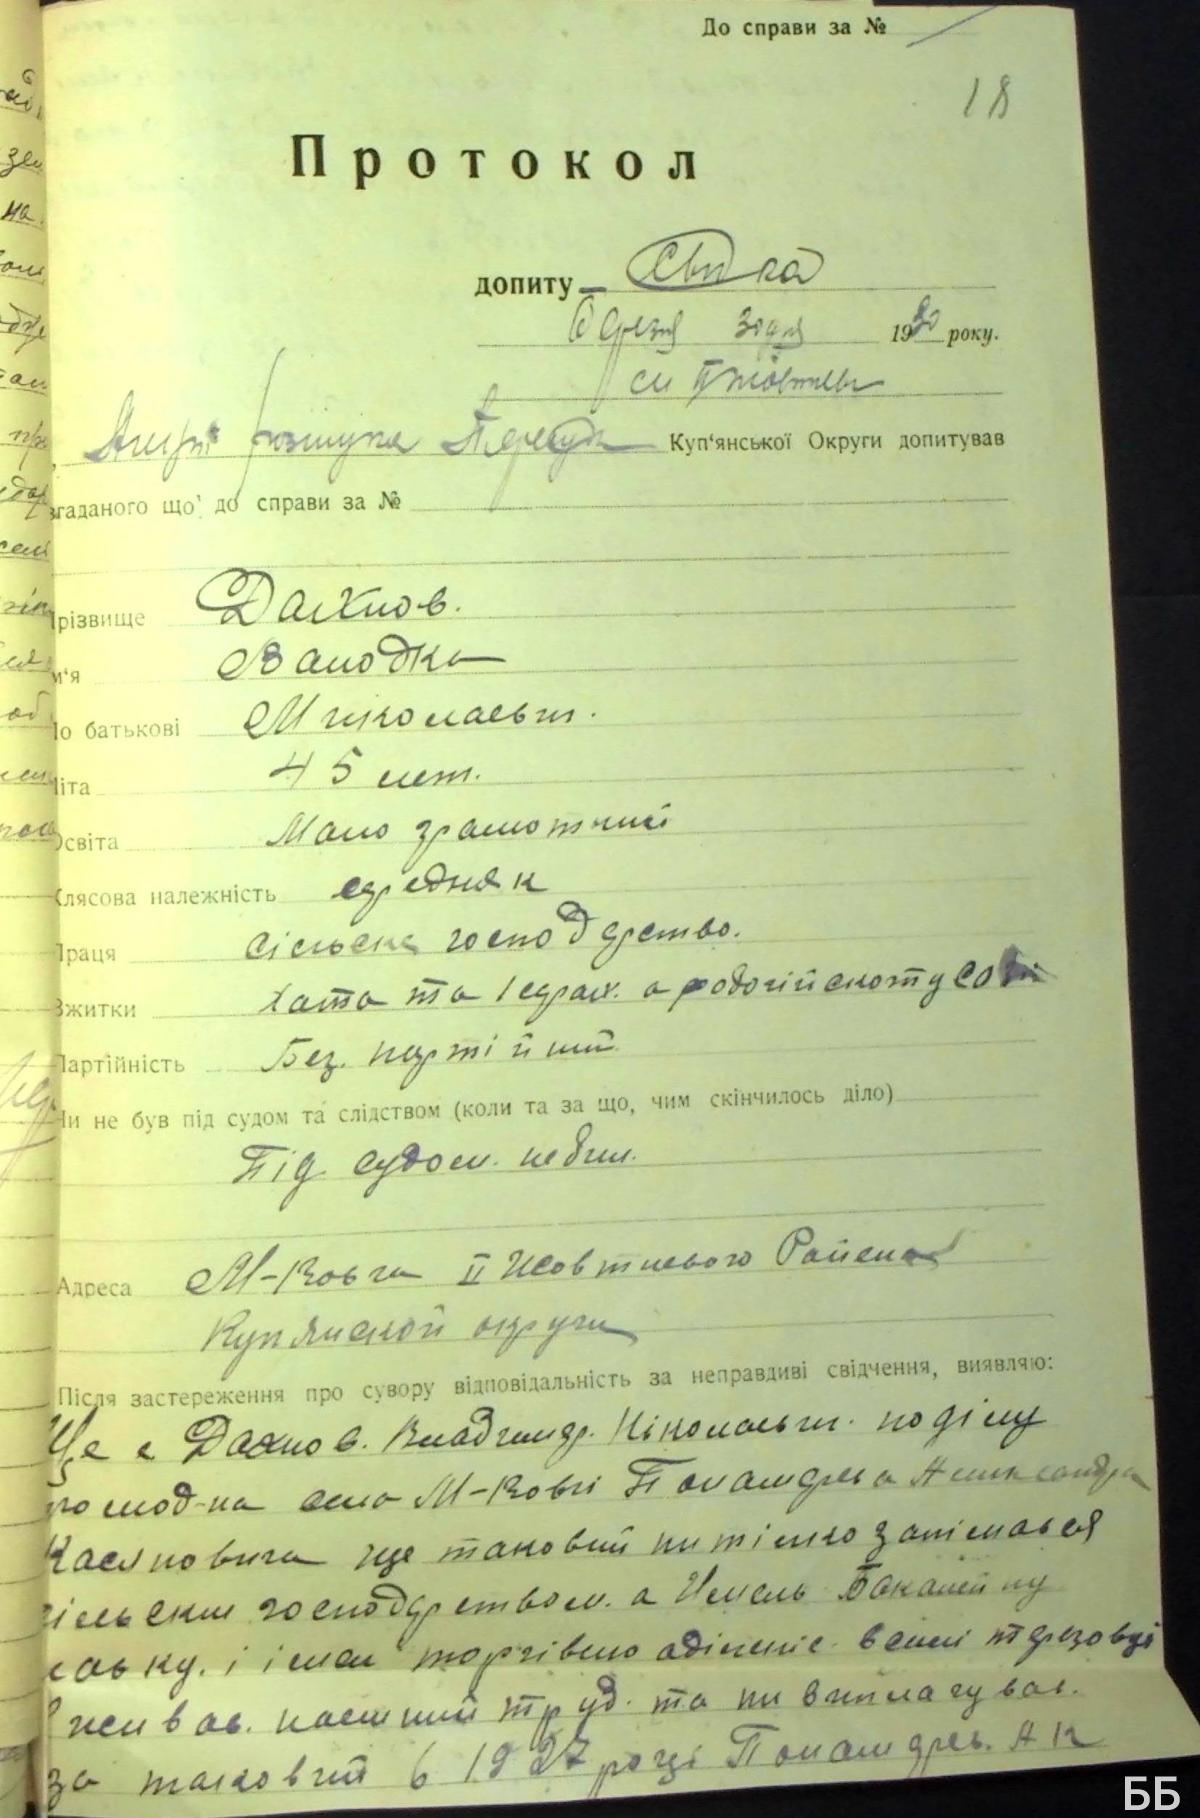 До справи за №
18
Протокол
допиту Свідка
1930 року.
Куп'янської Округи допитував
згаданого що' до справи за №
різвище Дахнов.
м'я Валодка
о батькові Миколаевич.
іта 45 лет.
світа Мало грамотний
лясова належність середняк
раця сільське господарство.
житки Хата та 1 сарай. а
артійність Без. партійний
и не був під судом та слідством (коли та за що, чим скінчилось діло)
Під судом. небил.
Адреса М-Вовча II Жовтневого Району
Купянской округи
Після застереження про сувору відповідальність за неправдиві свідчення, виявляю:
Ще Дахнов. Владимир. Ніколаевич. поділу
село М-Вовчі Понамарева Александра
Касяновича ще таковий нитілко занімався
сільским господарством. а Имель Бакалейну
лавку. і імел торгівлю
наемний труд. та ни виплачував.
за таковий в 1927 році Понамарев. А К
ББ